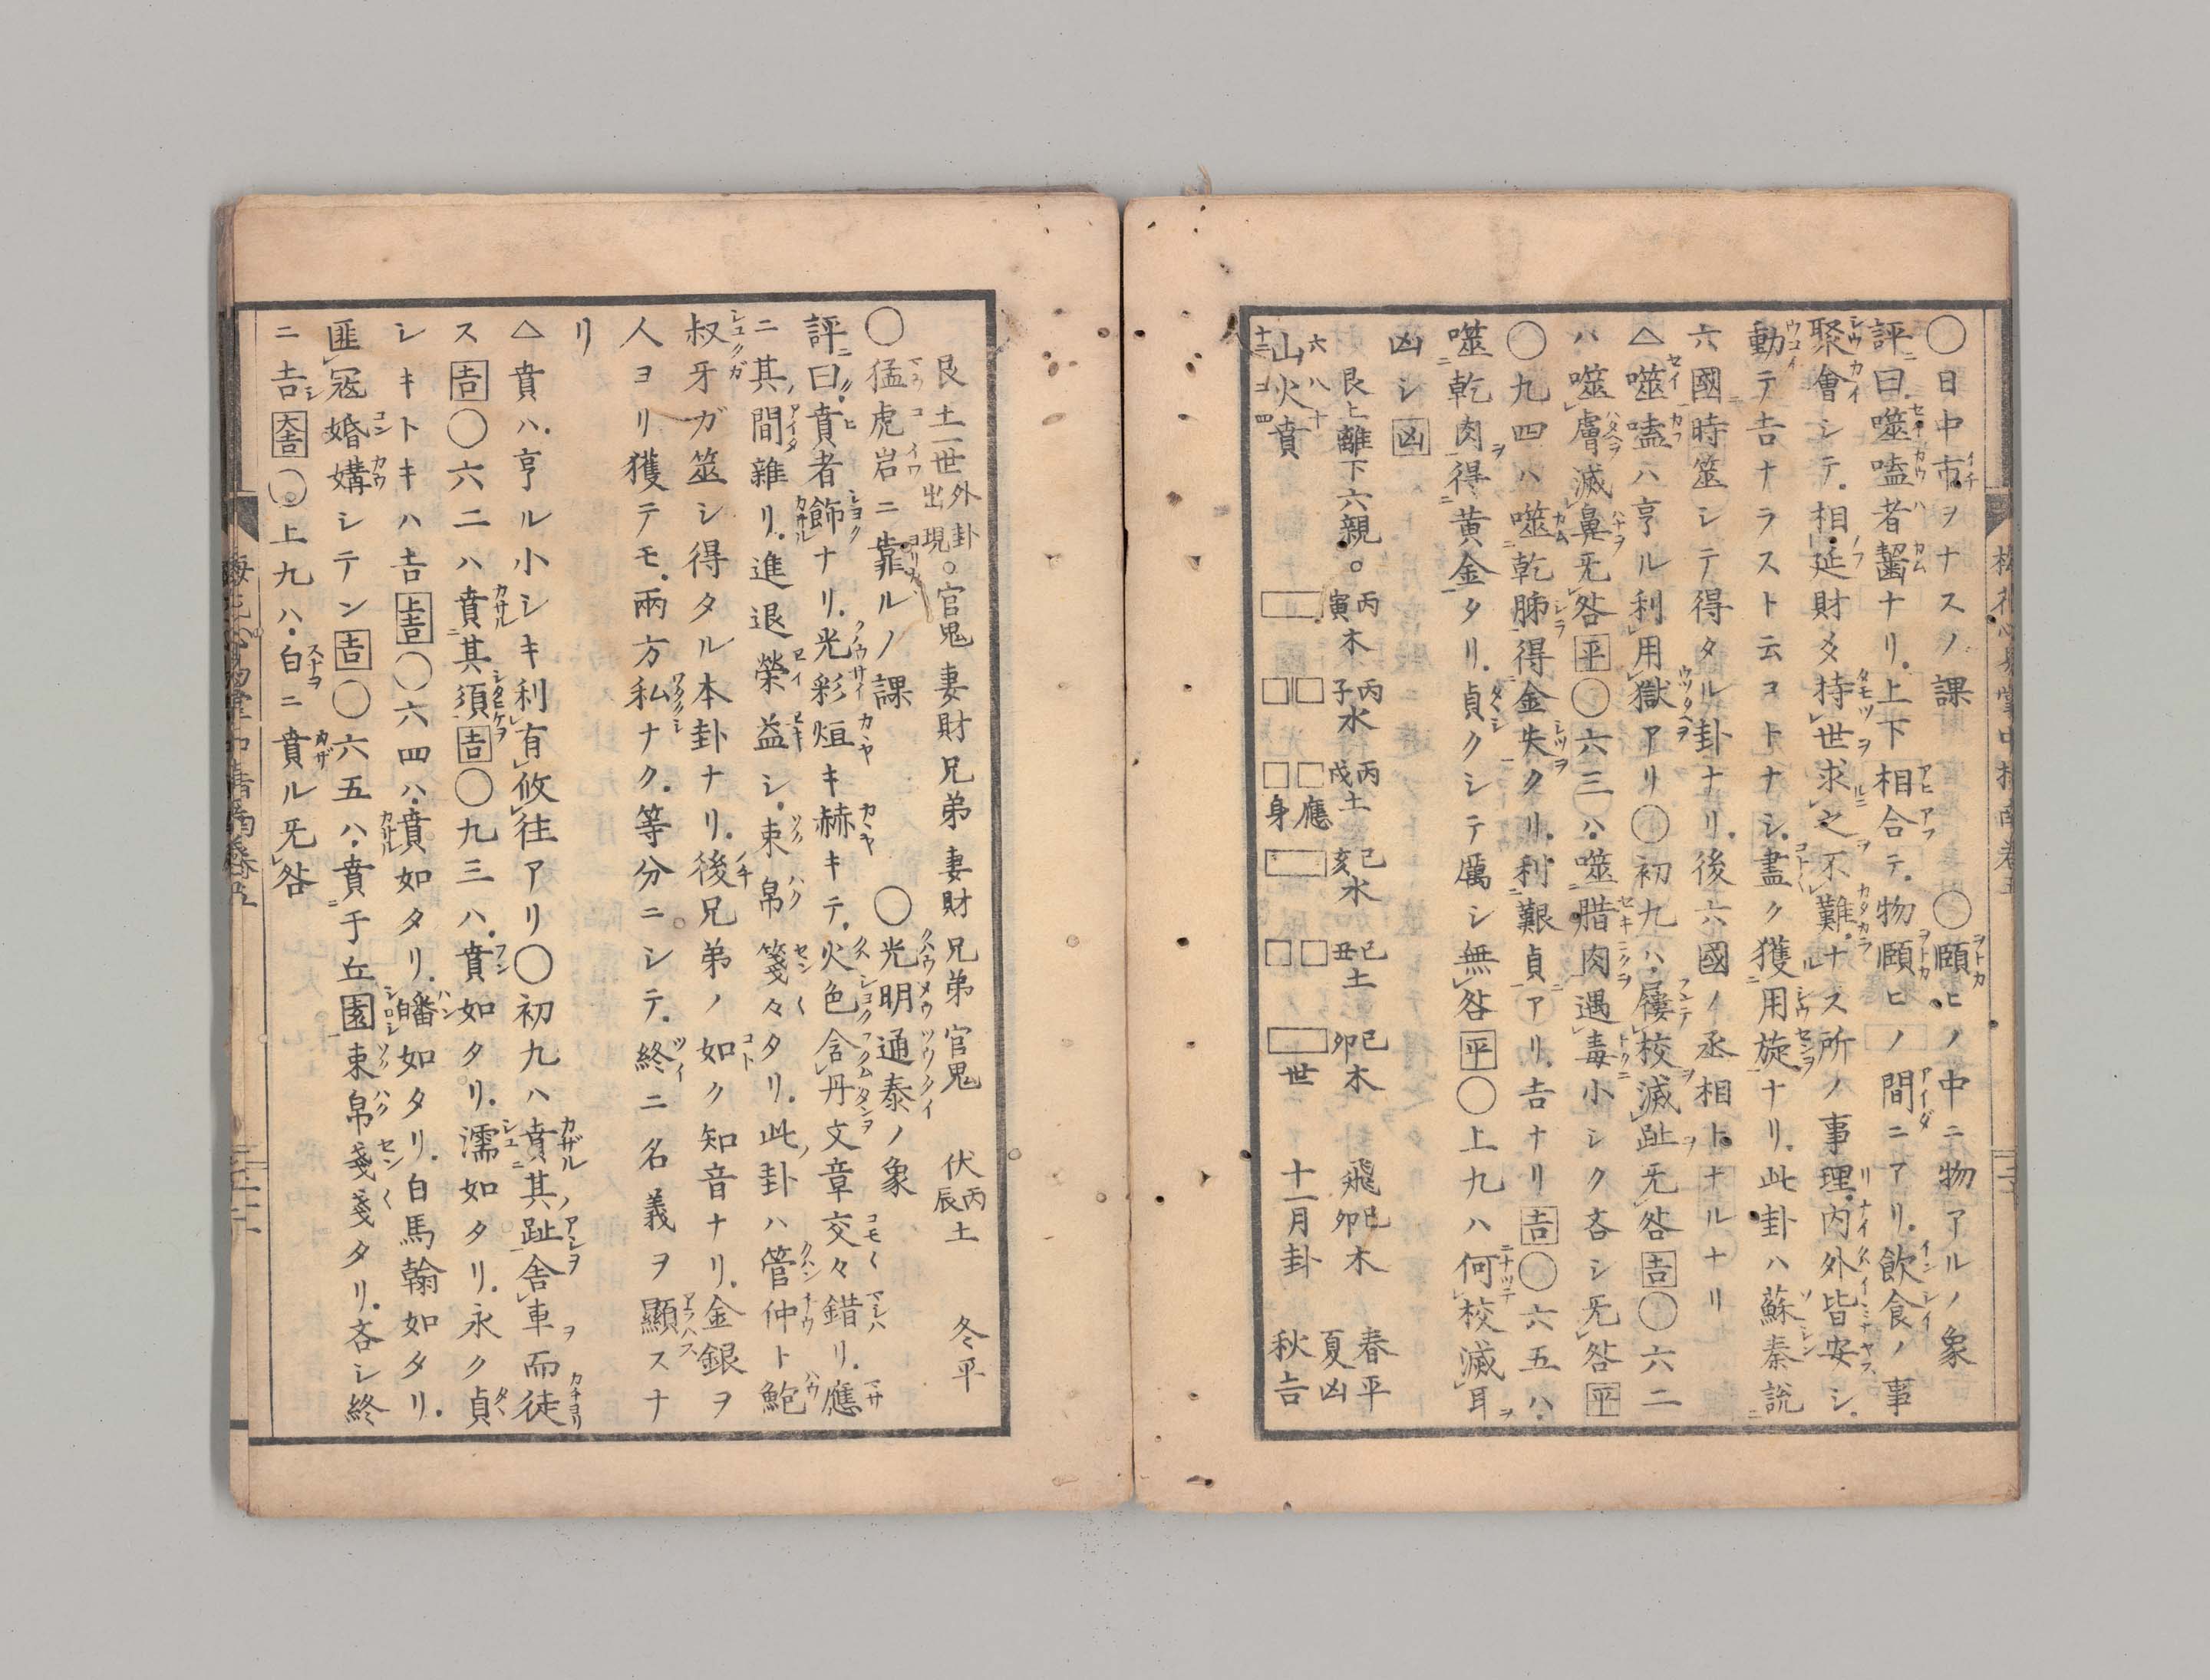 〇日中市ヲナスノ課　〇頤ヒノ中ニ物アルノ象
評曰噬嗑者齧ナリ上下相合テ物頤ヒノ間ニアリ飲食ノ事
聚會シテ相延財爻持世求之不難ナス所ノ事理内外皆安シ
動テ吉ナラスト云コトナシ盡ク獲用旋ナリ此卦ハ蘇秦説
六國時筮シテ得タル卦ナリ後六國ノ丞相トナルナリ
△噬嗑ハ亨ル利用獄アリ〇初九ハ屨校滅趾旡咎吉〇六二
ハ噬膚滅鼻旡咎平〇六三ハ噬腊肉遇毒小シク吝シ旡咎平
〇九四ハ噬乾胏得金矢クリ利艱貞アリ吉ナリ吉〇六五ハ
噬乾肉得黄金タリ貞クシテ厲シ無咎平〇上九ハ何校滅耳
凶シ凶
艮上離下六親。丙寅木　丙子水　丙戌土　己亥水　己丑土　己卯木　飛己卯木　春平　夏凶　秋吉
山火賁　應　身　世　十一月卦
六八十　十二コ四
艮土一世外卦出現。官鬼　妻財　兄弟　妻財　兄弟　官鬼　伏丙辰土　冬平
〇猛虎岩ニ靠ルノ課　〇光明通泰ノ象
評曰賁者飾ナリ光彩烜キ赫キテ火色含丹文章交々錯リ應
ニ其間雜リ進退榮益シ束帛箋々タリ此卦ハ管仲ト鮑
叔牙ガ筮シ得タル本卦ナリ後兄弟ノ如ク知音ナリ金銀ヲ
人ヨリ獲テモ兩方私ナク等分ニシテ終ニ名義ヲ顯スナ
リ
△賁ハ亨ル小シキ利有攸往アリ〇初九ハ賁其趾舎車而徒
ス吉〇六二ハ賁其須吉〇九三ハ賁如タリ濡如タリ永ク貞
シキトキハ吉上吉〇六四ハ賁如タリ皤如タリ白馬翰如タリ
匪寇婚媾シテン吉〇六五ハ賁于丘園束帛戔戔タリ吝シ終
ニ吉大吉〇上九ハ白ニ賁ル旡咎